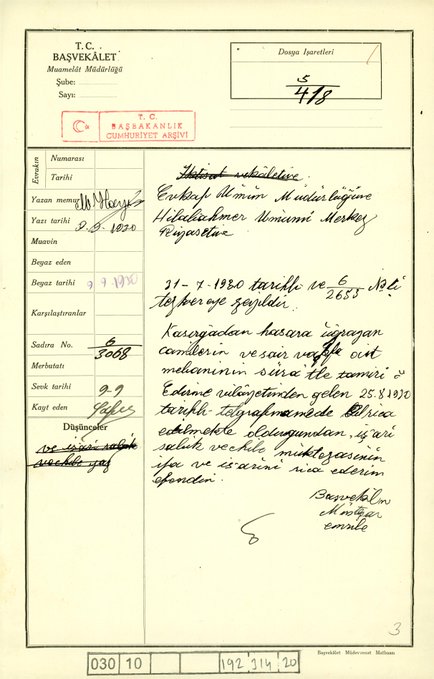 T. C.
BAŞVEKÂLET
Muamelât Müdürlüğü
Şube:
Sayı:
Dosya İşaretleri
5
418
T. C.
BAŞBAKANLIK
CUMHURİYET ARŞİVİ
Evrakın
Numarası
Tarihi
Yazan memur
Yazı tarihi 9.9.1930
Muavin
Beyaz eden
Beyaz tarihi 9 9 1930
Karşılaştıranlar
Sadıra No. 6
3068
Merbutatı
Sevk tarihi 9.9
Kayt eden
Düşünceler
İktisat vekâletine
Evkaf Umum Müdürlüğüne
Hilaliahmer Umumî Merkez
Riyasetine
31-7-1930 tarihli ve 6
2655 No.lı
tezkereye zeyildir.
Kasırgadan hasara uğrayan
camilerin ve sair vakfa ait
mebaninin sür'atle tamiri
Edirne vilâyetinden gelen 25.8.1930
tarihli telgrafnamede rica
edilmekte olduğundan, iş'arı
vechile muktezasının
ifa ve iş'arını rica ederim
efendim.
Başvekâlet
Müsteşar
emrile
3
Başvekâlet Müdevvenat Matbaası
030 10 192 314 20